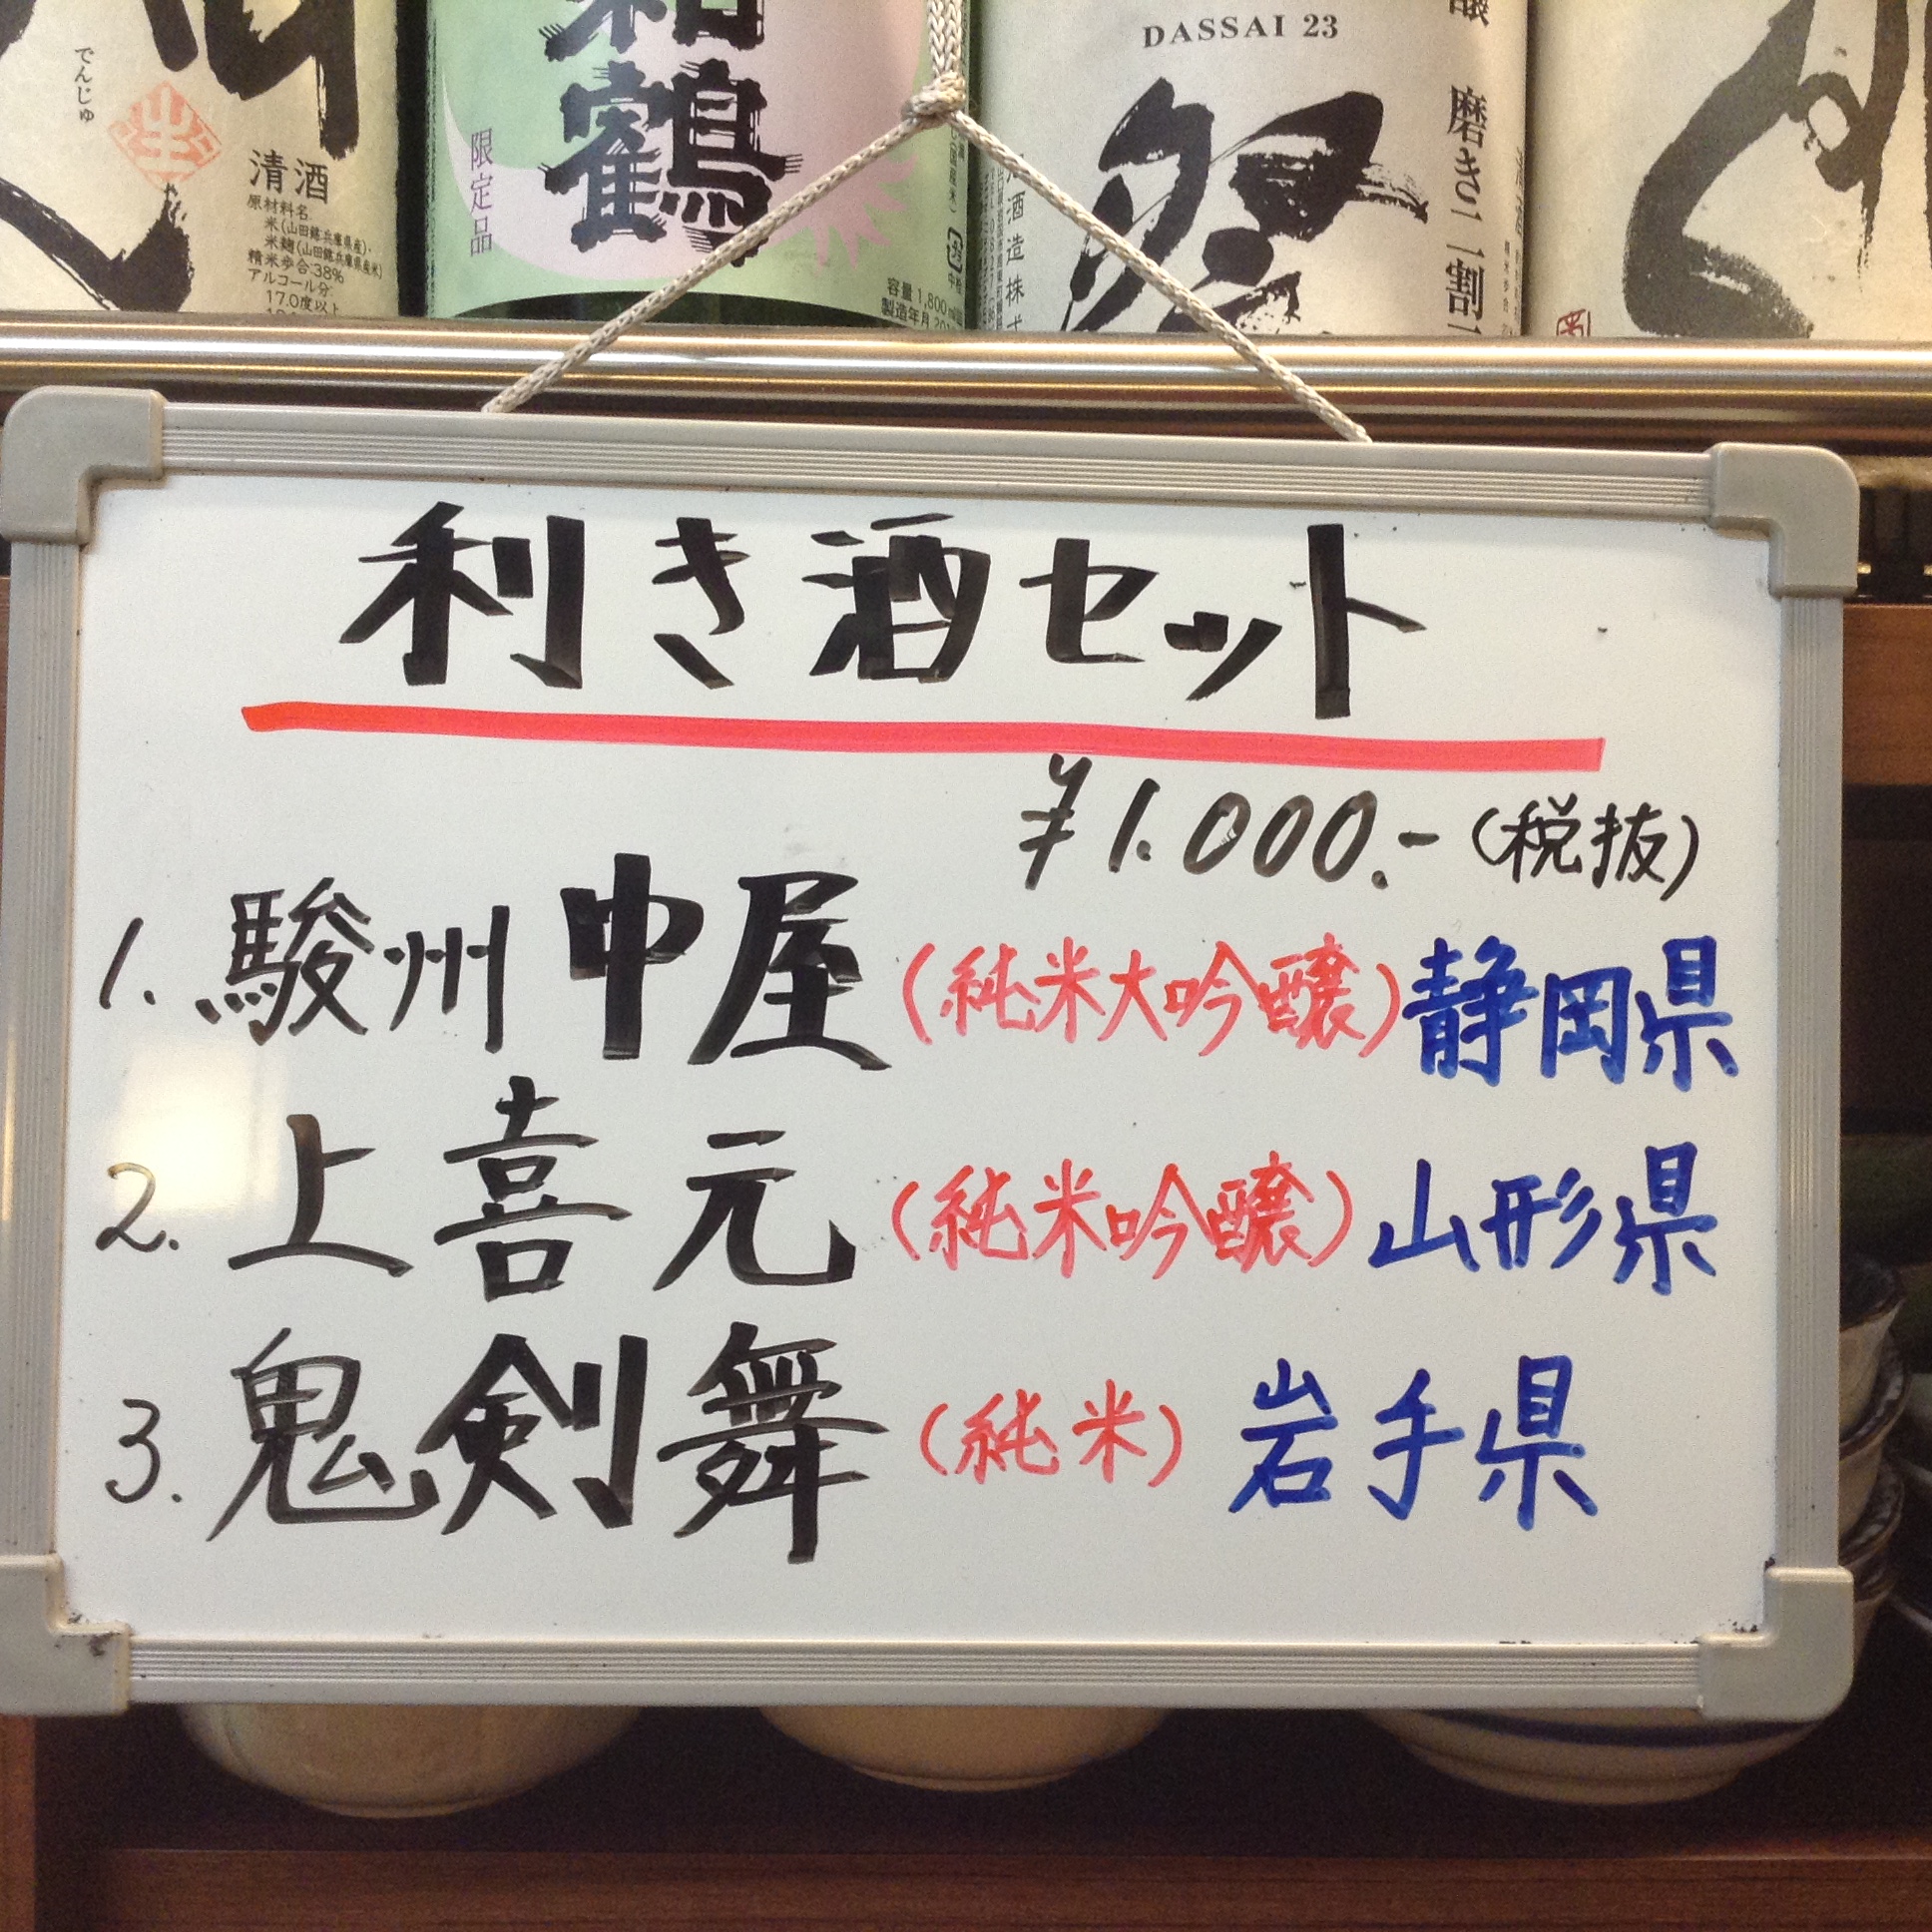 でんじゅ
生
清酒
原材料名
米(山田錦兵庫県産)・
米麹(山田錦兵庫県産米)
精米歩合:38%
アルコール分
17.0度以上
鶴
限定品
容量 1,800ml
製造年月
DASSAI 23
祭
磨き二割三
酒造株式
利き酒セット
¥1.000.-(税抜)
1. 駿州中屋(純米大吟醸)静岡県
2. 上喜元(純米吟醸)山形県
3. 鬼剣舞(純米)岩手県